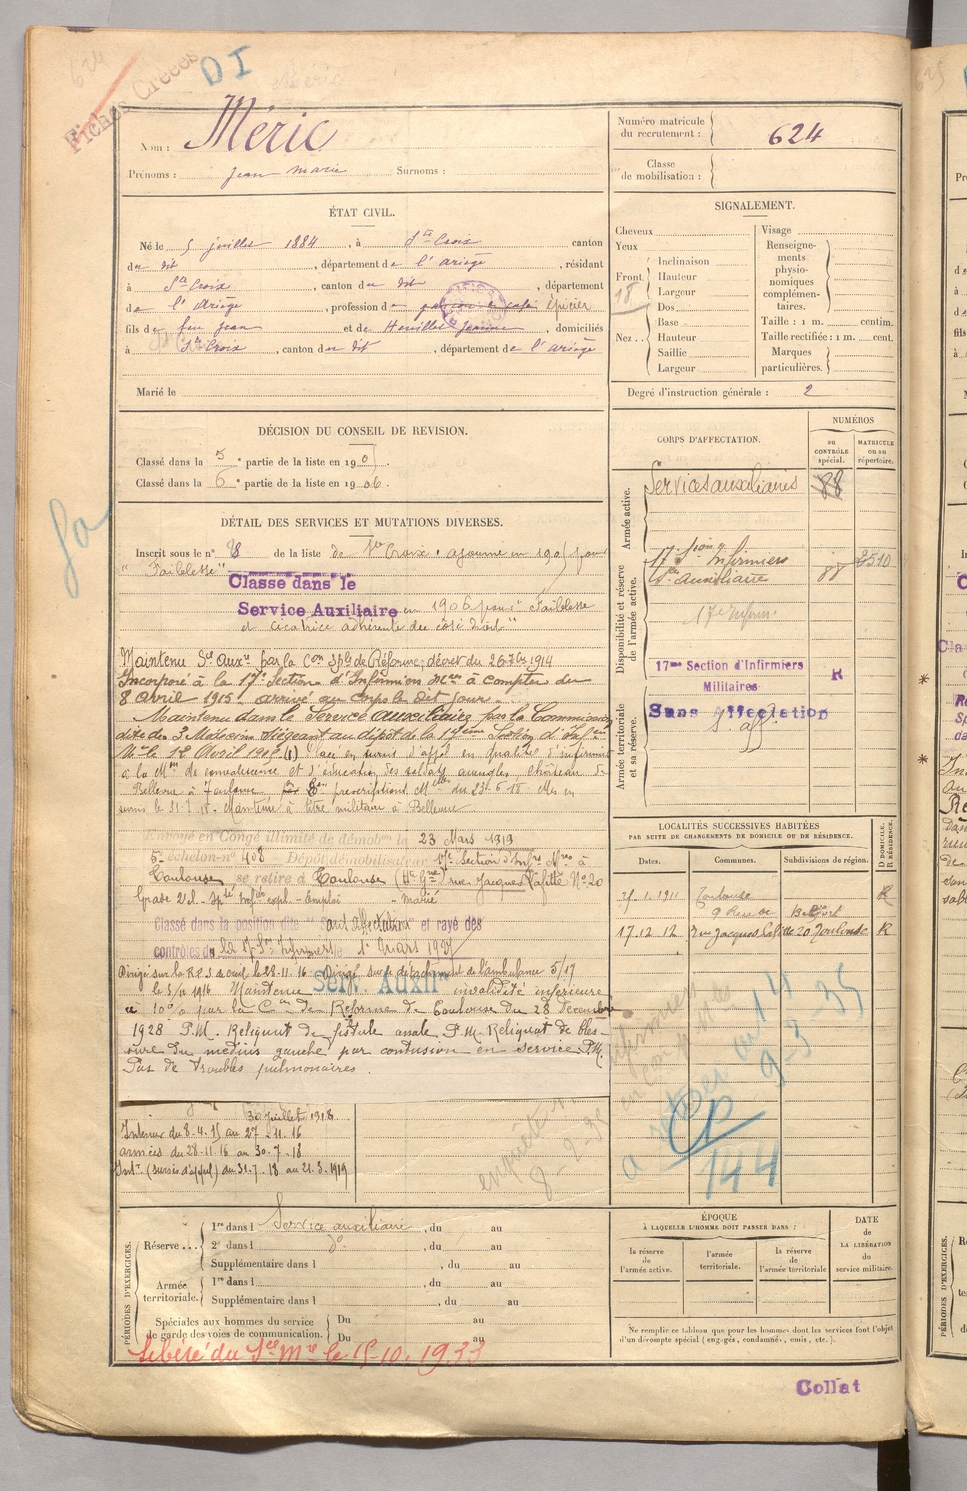 624
Fiches Créées
DI
Nom : Méric
Prénoms : Jean Marie Surnoms :
Numéro matricule du recrutement : 624
Classe de mobilisation :
ÉTAT CIVIL.
Né le 5 juillet 1884, à Ste Croix canton
du dit, département de l'Ariège, résidant
à Ste Croix, canton du dit, département
de l'Ariège, profession de garçon de café épicier
fils de feu Jean et de Jeanne, domiciliés
à Ste Croix, canton du dit, département de l'Ariège
Marié le
SIGNALEMENT.
Cheveux
Yeux
Front Inclinaison
Hauteur
Largeur
18
Nez Dos
Base
Hauteur
Saillie
Largeur
Visage
Renseignements physionomiques complémentaires.
Taille : 1 m. centim.
Taille rectifiée : 1 m. cent.
Marques particulières.
Degré d'instruction générale : 2
DÉCISION DU CONSEIL DE REVISION.
Classé dans la 5e partie de la liste en 1905.
Classé dans la 6e partie de la liste en 1906.
DÉTAIL DES SERVICES ET MUTATIONS DIVERSES.
Inscrit sous le n° 8 de la liste de Ste Croix. ajourné en 1905 pour
"Faiblesse"
Classé dans le
Service Auxiliaire en 1906 pour "Faiblesse
et cicatrice adhérente du côté droit"
Maintenu Sce Auxre par la Con Sple de Réforme; décret du 26 7bre 1914
Incorporé à la 17e Section d'Infirmiers Mres à compter du
8 avril 1915. arrivé au corps le dit jour.
Maintenu dans le Service Auxiliaire par la Commission
dite des 3 Médecins siégeant au dépôt de la 17ème Section d'Infers
Mres le 12 Avril 1915 (1) Placé en sursis d'appel en qualité d'infirmier
à la Mon de convalescence et d'éducation des soldats aveugles, château de
Bellevue à Toulouse prescriptions Mlles du 23-6-18 Mis en
sursis le 31-7-18. Maintenu à titre militaire à Bellevue
Envoyé en Congé illimité de démobon le 23 Mars 1919
5e échelon n° 408 Dépôt démobilisateur 17e Section d'Infrs Mres à
Toulouse se retire à Toulouse (Hte Gne) rue Jacques Lafitte No 20
Grade 2e cl. Spté Infier expl. Emploi marié
Classé dans la position dite "Sans affectation" et rayé des
contrôles de la 17 Son Infirmiers le 1er Mars 1927
Dirigé sur la R.E.S. de Creil le 28.11.16. Dirigé sur le détachement de l'ambulance 5/17
Serv. Auxil.
le 3/12 1916 Maintenu invalidité inférieure
à 10% par la Con de Réforme de Toulouse du 28 décembre
1928 P.M. Reliquat de fistule anale. P.M. Reliquat de bles-
sure du médius gauche par contusion en service P.M.
Pas de troubles pulmonaires.
30 juillet 1918
Intérieur du 8.4.15 au 27-11-16
armées du 28-11-16 au 30-7-18
Intr (sursis d'appel) du 31-7-18 au 21.3.1919
enquête
CORPS D'AFFECTATION.
NUMÉROS
au CONTRÔLE spécial.
MATRICULE ou au répertoire.
Armée active.
Services auxiliaires 88
Disponibilité et réserve de l'armée active.
17e Son Infirmiers 2510
Sce Auxiliaire
17e Infirm
17me Section d'Infirmiers
Militaires R
Armée territoriale et sa réserve.
Sans Affectation
S. aff.
LOCALITÉS SUCCESSIVES HABITÉES
PAR SUITE DE CHANGEMENTS DE DOMICILE OU DE RÉSIDENCE.
Dates. Communes. Subdivisions de région. D DOMICILE. R RÉSIDENCE.
1.1911 Toulouse R
9 Rue de Belfort
17.12.12 rue Jacques Lafitte 20 Toulouse R
9-3-35
144
PÉRIODES D'EXERCICES.
Réserve
1re dans l Service auxiliaire, du au
2e dans l do, du au
Supplémentaire dans l, du au
Armée territoriale.
1re dans l, du au
Supplémentaire dans l, du au
Spéciales aux hommes du service de garde des voies de communication.
Du au
Du au
Libéré du Sce Mre le 15-10.1933
ÉPOQUE
À LAQUELLE L'HOMME DOIT PASSER DANS :
la réserve de l'armée active.
l'armée territoriale.
la réserve de l'armée territoriale.
DATE DE LA LIBÉRATION du service militaire.
Ne remplir ce tableau que pour les hommes dont les services font l'objet
d'un décompte spécial (engagés, condamnés, omis, etc.).
Collat